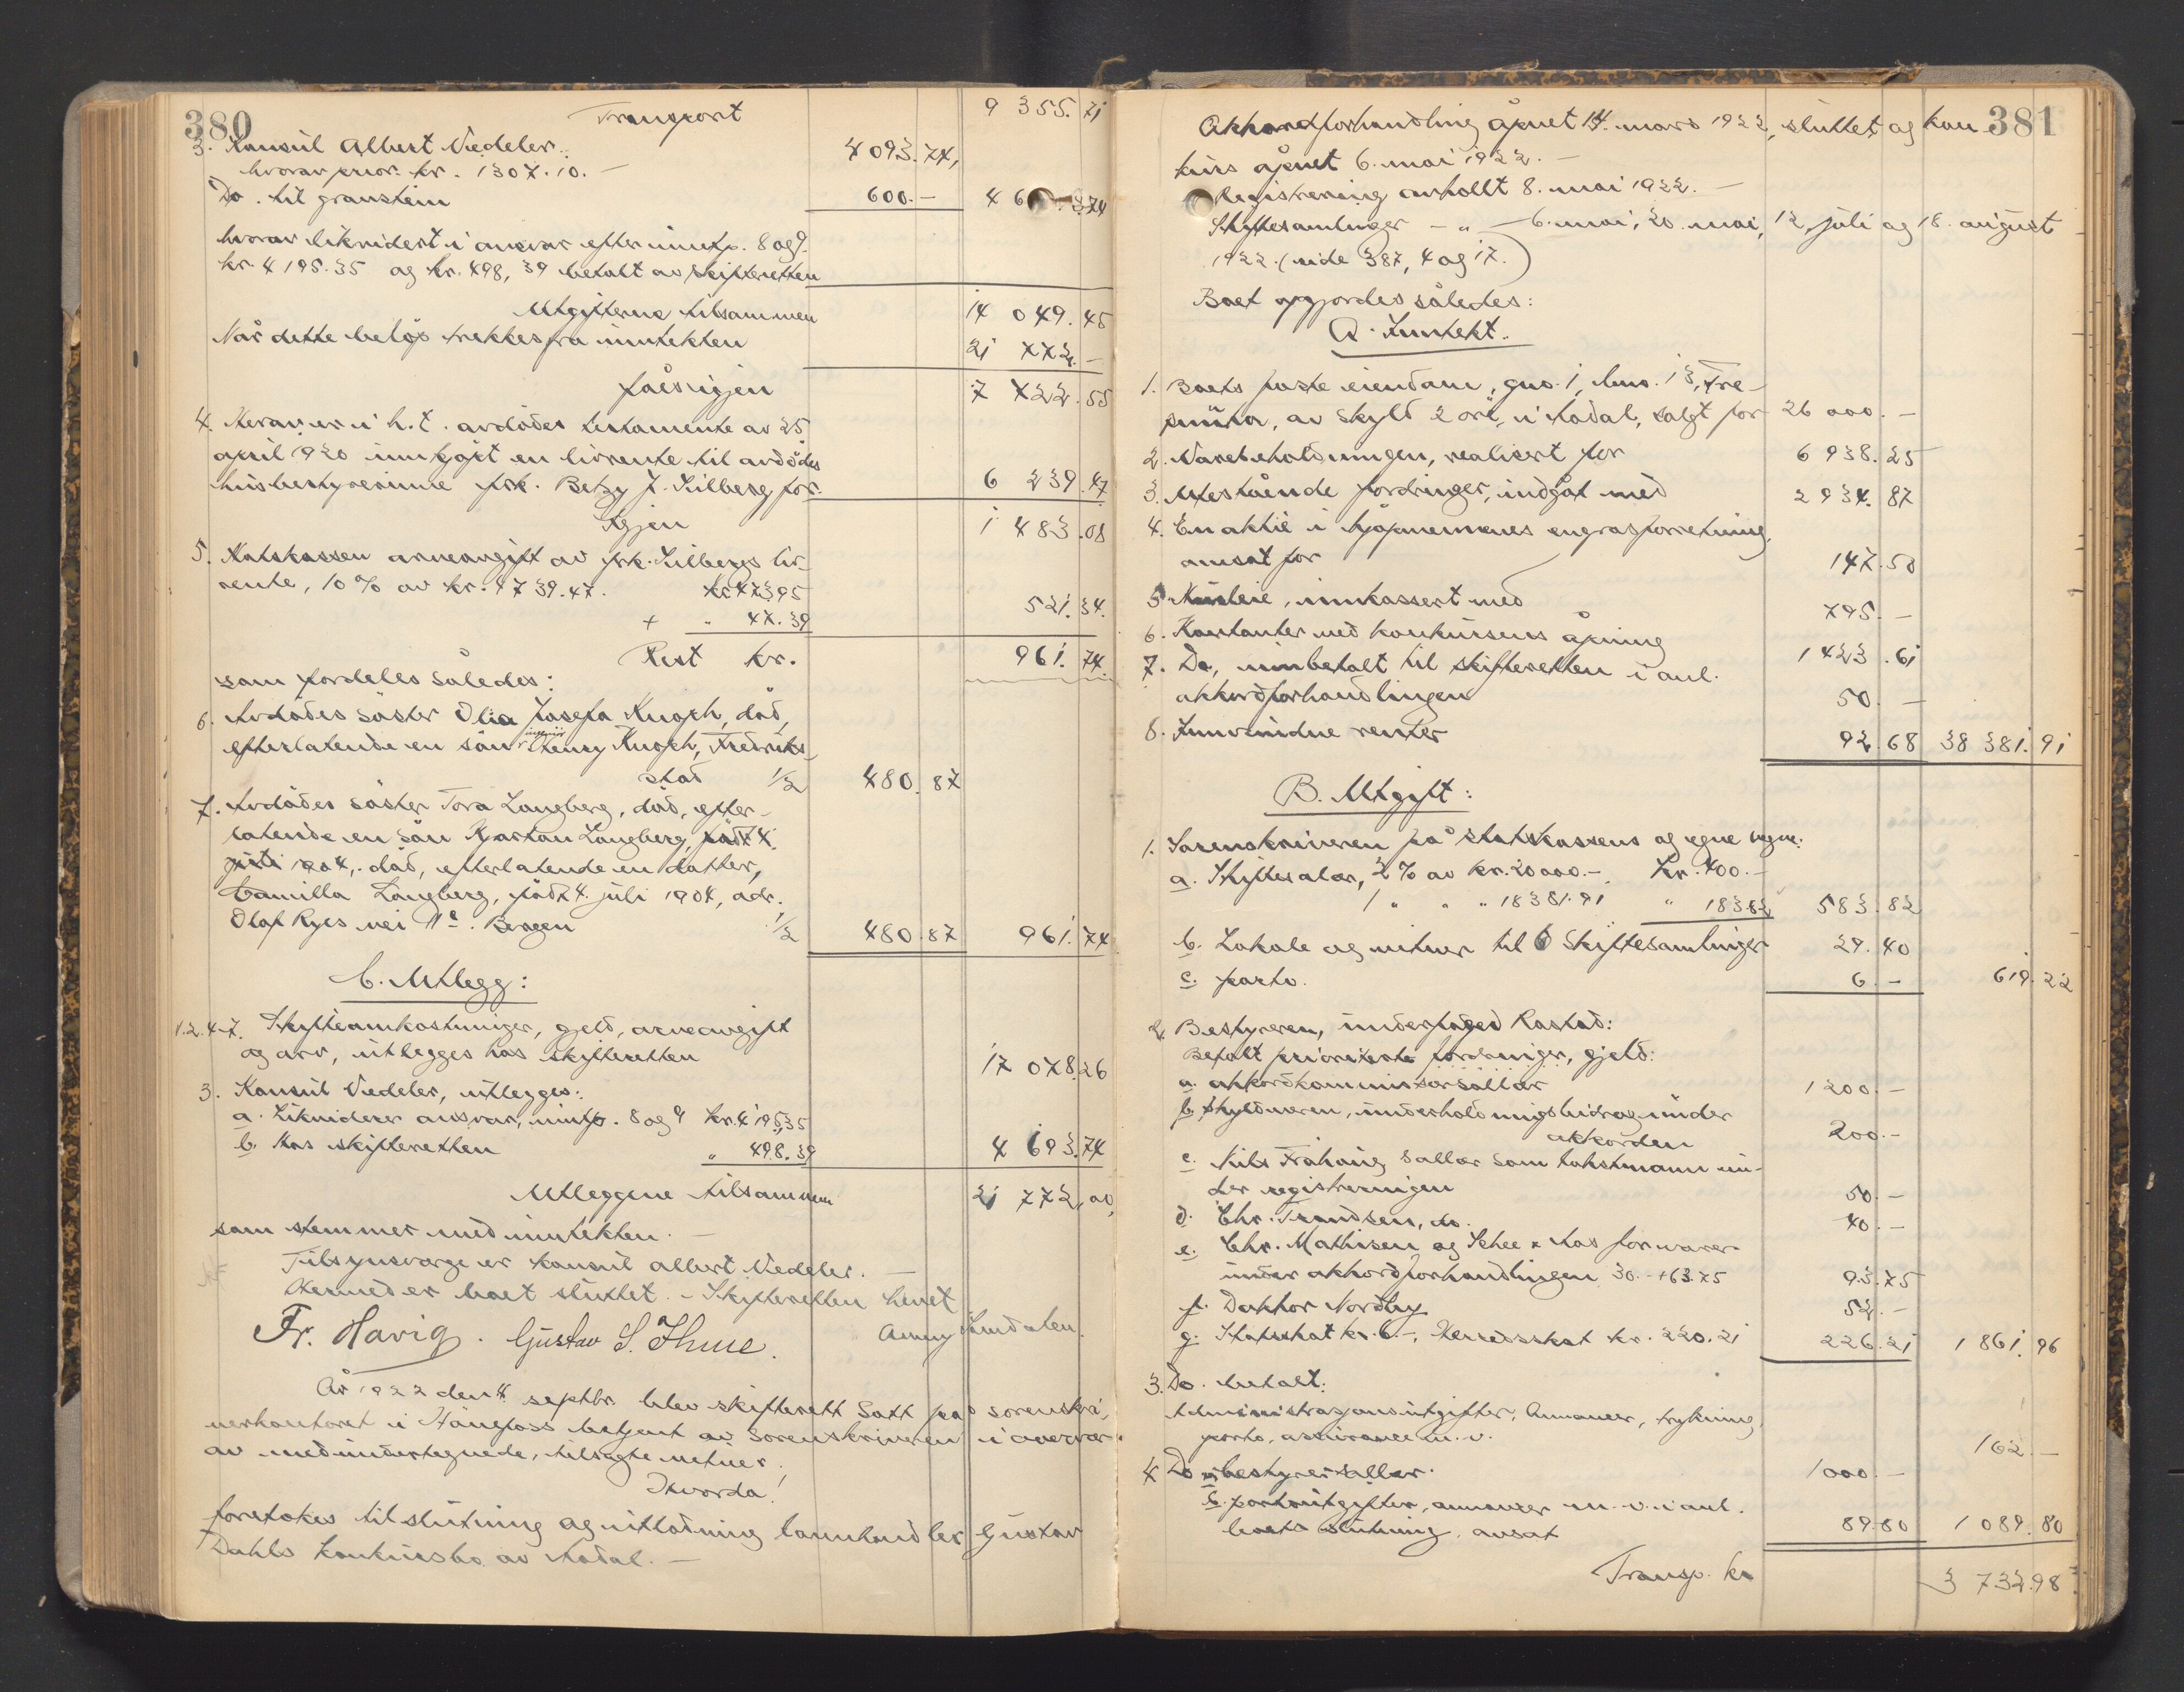 380
Transport 9 355.71
3. Konsul Albert Viedeler.. 4093.74,
hvorav prior. kr. 1307.10. —
Do. til gravstein 600.— 4 693.74
hvorav likvidert i ansvar efter inntp. 8 og 9.
kr. 4195.35 og kr. 498,39 betalt av skifteretten
Utgifterne tilsammen 14 049.45
Når dette beløp trekkes fra inntekten 21 772.—
fåes igjen 7 722.55
4. Herav er i h.t. avdødes testamente av 25
april 1920 innkjøpt en livrente til avdødes
husbestyrerinne frk. Betzy J. Kilberg for 6 239.47
Igjen 1 483.08
5. Statskassen arveavgift av frk. Kilbergs liv-
rente, 10 % av kr. 4739.47. kr 473,95
+ " 47.39 521.34.
Rest kr. 961.74
som fordeles således:
6. Avdødes søster Olia Josefa Knoph, død,
efterlatende en sønn ingeniør Henny Knoph, Fredriks-
stad 1/2 480.87
7. Avdødes søster Tora Langberg, død, efter-
latende en sønn Kjartan Langberg, født 4.
juli 1904, død, efterlatende en datter,
Camilla Langberg, født 4. juli 1904, adr.
Olaf Ryes vei 11c. Bergen 1/2 480.87 961.74
C. Utlegg:
1.2.4-7. Skifteomkostninger, gjeld, arveavgift
og arv, utlegges hos skifteretten 17 078.26
3. Konsul Viedeler, utlegges:
a. Likviderer ansvar, inntp. 8 og 9 kr. 4195,35
b. Hos skifteretten " 498.39 4 693.74
Utleggene tilsammen 21 772,00
som stemmer med inntekten. —
Tilsynsverge er konsul Albert Viedeler. —
Hermed er boet sluttet. — Skifteretten hevet
Fr. Havig. Gustav S. Ihme. Anny Sundalen.
År 1922 den 4 septbr. blev skifterett satt på sorenskri-
verkontoret i Hångfoss betjent av sorenskriveren i overvær
av medundertegnede, tilsagte vitner.
Hvorda!
foretokes til slutning og utlodning landhandler Gustav
Dahls konkursbo av Hodal. —
381
Akkordforhandling åpnet 14. mars 1922, sluttet og kon-
kurs åpnet 6. mai 1922. —
Registrering avholdt 8. mai 1922. —
Skiftesamlinger — " — 6. mai, 20. mai, 12. juli og 18. august
1922. (side 387, 4 og 17.)
Boet opgjordes således:
A. Inntekt.
1. Boets faste eiendom, gno. 1, bno. 13, Fre-
, av skyld 2 øre, i Hodal, solgt for 26 000.—
2. Varebeholdningen, realisert for 6 938.25
3. Utestående fordringer, indgåt med 2 934.87
4. En aktie i kjøpmennenes engrosforretning,
ansat for 147.50
5. Husleie, innkassert med 795.—
6. Kontanter ved konkursens åpning 1 423.61
7. Do, innbetalt til skifteretten i anl.
akkordforhandlingen 50.—
8. Innvundne renter 92.68 38 381.91
B. Utgift:
1. Sorenskriveren på statskassens og egne vegne:
a. Skiftesalær, 2 % av kr. 20 000.— Kr. 400.—
1 " " " 18381.91 " 183.82 583.82
b. Lokale og vitner til 6 skiftesamlinger 29.40
c. porto. 6.— 619.22
2. Bestyreren, underfoged Rostad:
Betalt prioriterte fordringer, gjeld:
a. akkordkommissærsallær 1 200.—
b. skyldneren, underholdningsbidrag under
akkorden 200.—
c. Nils Frahaug sallær som takstmann un-
der registreringen 50.—
d. Chr. Trondsen, do. 40.—
e. Chr. Mathisen og Schee & Aas for varer
under akkordforhandlingen 30.- + 63.75 93.75
f. Doktor Nordby 52.—
g. Statsskat kr. 6.—, Herredsskat kr. 220.21 226.21 1 861.96
3. Do. betalt:
Administrasjonsutgifter, Annoncer, trykning,
porto, assurance m. v. 162.—
4. Do a. bestyrersallær. 1000.—
b. portoutgifter, annonser m. v. i anl.
boets slutning, ansat 89.80 1 089.80
Transp. kr 3 732.98